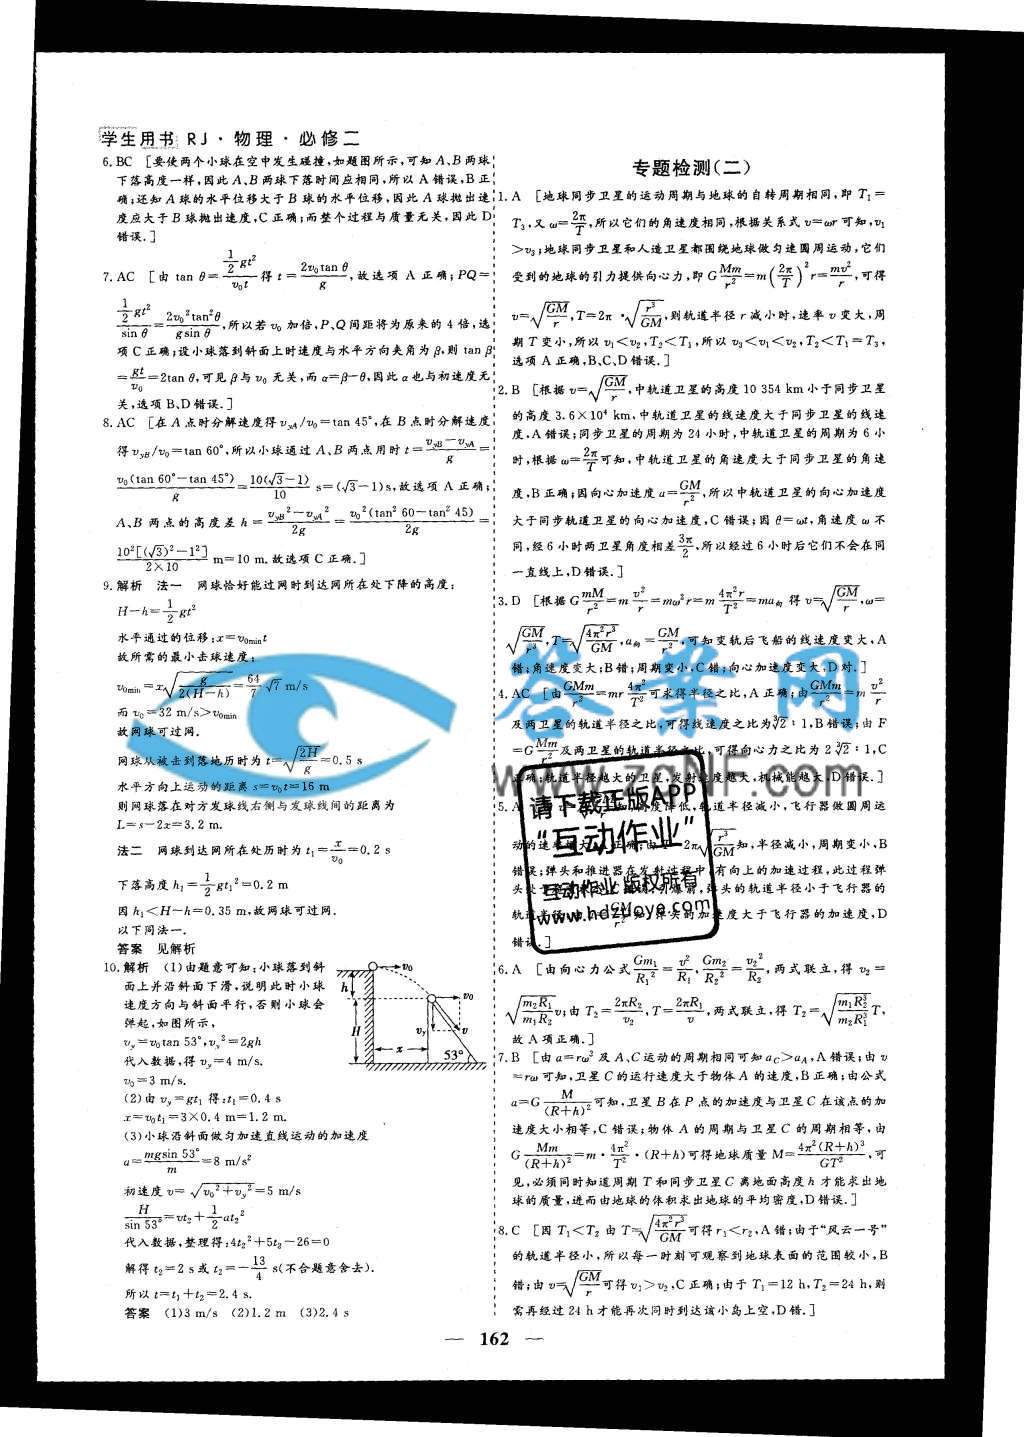 学生用书 RJ·物理·必修二
6. BC [要使两个小球在空中发生碰撞,如题图所示,可知A、B两球
下落高度一样,因此A、B两球下落时间应相同,所以A错误,B正
确;还知A球的水平位移大于B球的水平位移,因此A球抛出速
度应大于B球抛出速度,C正确;而整个过程与质量无关,因此D
错误.]
7. AC [由 tan θ=½gt²/v₀t 得 t=2v₀tan θ/g,故选项A正确;PQ=
½gt²/sin θ=2v₀²tan²θ/gsin θ,所以若v₀加倍,P、Q间距将为原来的4倍,选
项C正确;设小球落到斜面上时速度与水平方向夹角为β,则tan β
=gt/v₀=2tan θ,可见β与v₀无关,而α=β-θ,因此α也与初速度无
关,选项B、D错误.]
8. AC [在A点时分解速度得v_yA/v₀=tan 45°,在B点时分解速度
得v_yB/v₀=tan 60°,所以小球通过A、B两点用时t=(v_yB-v_yA)/g=
v₀(tan 60°-tan 45°)/g=10(√3-1)/10 s=(√3-1)s,故选项A正确;
A、B两点的高度差h=(v_yB²-v_yA²)/2g=v₀²(tan² 60-tan² 45)/2g=
10²[(√3)²-1²]/2×10 m=10 m.故选项C正确.]
9. 解析 法一 网球恰好能过网时到达网所在处下降的高度:
H-h=½gt²
水平通过的位移:x=v₀mint
故所需的最小击球速度:
v₀min=x√(g/2(H-h))=64/7 √7 m/s
而v₀=32 m/s>v₀min
故网球可过网.
网球从被击到落地历时为t=√(2H/g)=0.5 s
水平方向上运动的距离s=v₀t=16 m
则网球落在对方发球线右侧与发球线间的距离为
L=s-2x=3.2 m.
法二 网球到达网所在处历时为t₁=x/v₀=0.2 s
下落高度h₁=½gt₁²=0.2 m
因h₁<H-h=0.35 m,故网球可过网.
以下同法一.
答案 见解析
10. 解析 (1)由题意可知:小球落到斜
面上并沿斜面下滑,说明此时小球
速度方向与斜面平行,否则小球会
弹起,如图所示,
v_y=v₀tan 53°,v_y²=2gh
代入数据,得v_y=4 m/s.
v₀=3 m/s.
(2)由v_y=gt₁得:t₁=0.4 s
x=v₀t₁=3×0.4 m=1.2 m.
(3)小球沿斜面做匀加速直线运动的加速度
a=mgsin 53°/m=8 m/s²
初速度v=√(v₀²+v_y²)=5 m/s
H/sin 53°=vt₂+½at₂²
代入数据,整理得:4t₂²+5t₂-26=0
解得t₂=2 s或t₂=-13/4 s(不合题意舍去).
所以t=t₁+t₂=2.4 s.
答案 (1)3 m/s (2)1.2 m (3)2.4 s
v₀
h
v₀
v_y
v
H
x
53°
专题检测(二)
1. A [地球同步卫星的运动周期与地球的自转周期相同,即T₁=
T₃,又ω=2π/T,所以它们的角速度相同,根据关系式v=ωr可知,v₁
>v₃;地球同步卫星和人造卫星都围绕地球做匀速圆周运动,它们
受到的地球的引力提供向心力,即G Mm/r²=m(2π/T)²r=mv²/r,可得
v=√(GM/r),T=2π·√(r³/GM),则轨道半径r减小时,速率v变大,周
期T变小,所以v₁<v₂,T₂<T₁,所以v₃<v₁<v₂,T₂<T₁=T₃,
选项A正确,B、C、D错误.]
2. B [根据v=√(GM/r),中轨道卫星的高度10 354 km小于同步卫星
的高度3.6×10⁴ km,中轨道卫星的线速度大于同步卫星的线速
度,A错误;同步卫星的周期为24小时,中轨道卫星的周期为6小
时,根据ω=2π/T可知,中轨道卫星的角速度大于同步卫星的角速
度,B正确;因向心加速度a=GM/r²,所以中轨道卫星的向心加速度
大于同步轨道卫星的向心加速度,C错误;因θ=ωt,角速度ω不
同,经6小时两卫星角度相差3π/2,所以经过6小时后它们不会在同
一直线上,D错误.]
3. D [根据G mM/r²=m v²/r=mω²r=m 4π²r/T²=ma向 得v=√(GM/r),ω=
√(GM/r³),T=√(4π²r³/GM),a向=GM/r²,可知变轨后飞船的线速度变大,A
错;角速度变大;B错;周期变小,C错;向心加速度变大,D对.]
4. AC [由GMm/r²=mr 4π²/T²可求得半径之比,A正确;由GMm/r²=m v²/r
及两卫星的轨道半径之比,可得线速度之比为∛2:1,B错误;由F
=G Mm/r²及两卫星的轨道半径之比,可得向心力之比为2∛2:1,C
正确;轨道半径越大的卫星,发射速度越大,机械能越大,D错误.]
5. A 高度降低,轨道半径减小,飞行器做圆周运
动的速率增大,A正确;由T=2π√(r³/GM)知,半径减小,周期变小,B
错误;弹头和推进器在发射过程中,有向上的加速过程,此过程弹
头处于 引爆前,弹头的轨道半径小于飞行器的
轨道半径,由 知弹头的加速度大于飞行器的加速度,D
错误.]
6. A [由向心力公式Gm₁/R₁²=v²/R₁,Gm₂/R₂²=v₂²/R₂,两式联立,得v₂=
√(m₂R₁/m₁R₂)v;由T₂=2πR₂/v₂,T=2πR₁/v,两式联立,得T₂=√(m₁R₂³/m₂R₁³)T,
故A项正确.]
7. B [由a=rω²及A、C运动的周期相同可知a_C>a_A,A错误;由v
=rω可知,卫星C的运行速度大于物体A的速度,B正确;由公式
a=G M/(R+h)²可知,卫星B在P点的加速度与卫星C在该点的加
速度大小相等,C错误;物体A的周期与卫星C的周期相等,由
G Mm/(R+h)²=m·4π²/T²·(R+h)可得地球质量M=4π²(R+h)³/GT²,可
见,必须同时知道周期T和同步卫星C离地面高度h才能求出地
球的质量,进而由地球的体积求出地球的平均密度,D错误.]
8. C [因T₁<T₂由T=√(4π²r³/GM)可得r₁<r₂,A错;由于“风云一号”
的轨道半径小,所以每一时刻可观察到地球表面的范围较小,B
错;由v=√(GM/r)可得v₁>v₂,C正确;由于T₁=12 h,T₂=24 h,则
需再经过24 h才能再次同时到达该小岛上空,D错.]
答案网
www.zqNF.com
请下载正版APP
“互动作业”
互动作业 版权所有
www.hdzuoye.com
— 162 —